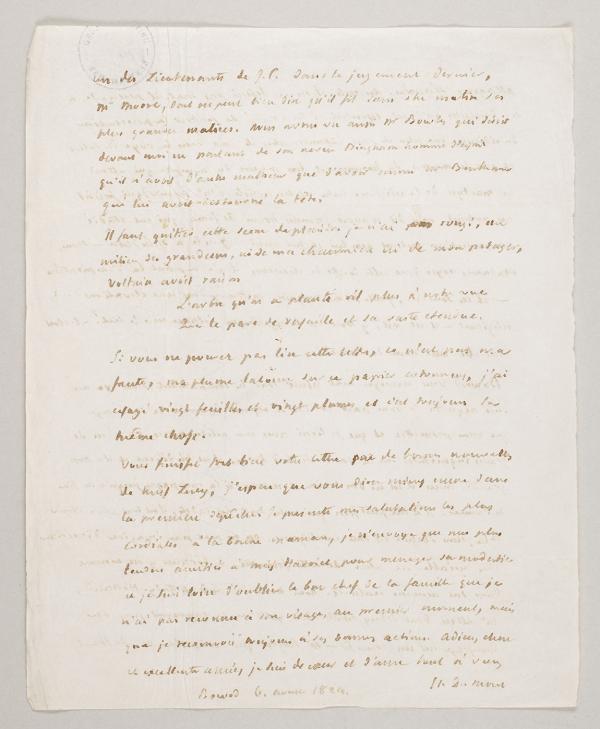 un des Lieutenants de J.C. dans le jugement dernier,
Mr Moore, dont on peut bien dire qu'il fit dans une matin ses
plus grandes malices. Nous avons vu aussi Mr Bowles qui disoit
devant moi en parlant de son neveu Bingham homme d'esprit
qu'il n'avoit d'autre malheur que d'avoir Mr Bentham
qui lui avoit destourné la tête.
Il faut quitter cette scene de plaisirs, je n'ai pas songé, au
milieu des grandeurs, ni de ma chaumiere ni de mon potager,
Voltaire avoit raison
L'arbre qu'on a planté rit plus à notre vue
Que le parc de Versailles et sa vaste étendue.
Si vous ne pouvez pas lire cette lettre, ce n'est pas ma
faute, ma plume laboure sur ce papier cotonneux, j'ai
essayé vingt feuilles et vingt plumes et c'est toujours la
même chose.
Vous finissez très bien votre lettre par de bonnes nouvelles
de Miss Lucy, j'espere que vous direz mieux encore dans
la premiere depêche. Je presente mes salutations les plus
cordiales à la bonne maman, je n'envoye que mes plus
tendres amitiés à Miss Harriet, pour menager sa modestie
et je suis loin d'oublier le bon chef de la famille que je
n'ai pas reconnu à son visage, au premier moment, mais
que je reconnois toujours à ses bonnes actions. Adieu, chere
et excellente amie, je suis de cœur et d'ame tout à vous
Bowood 6. 1820. St. Dumont